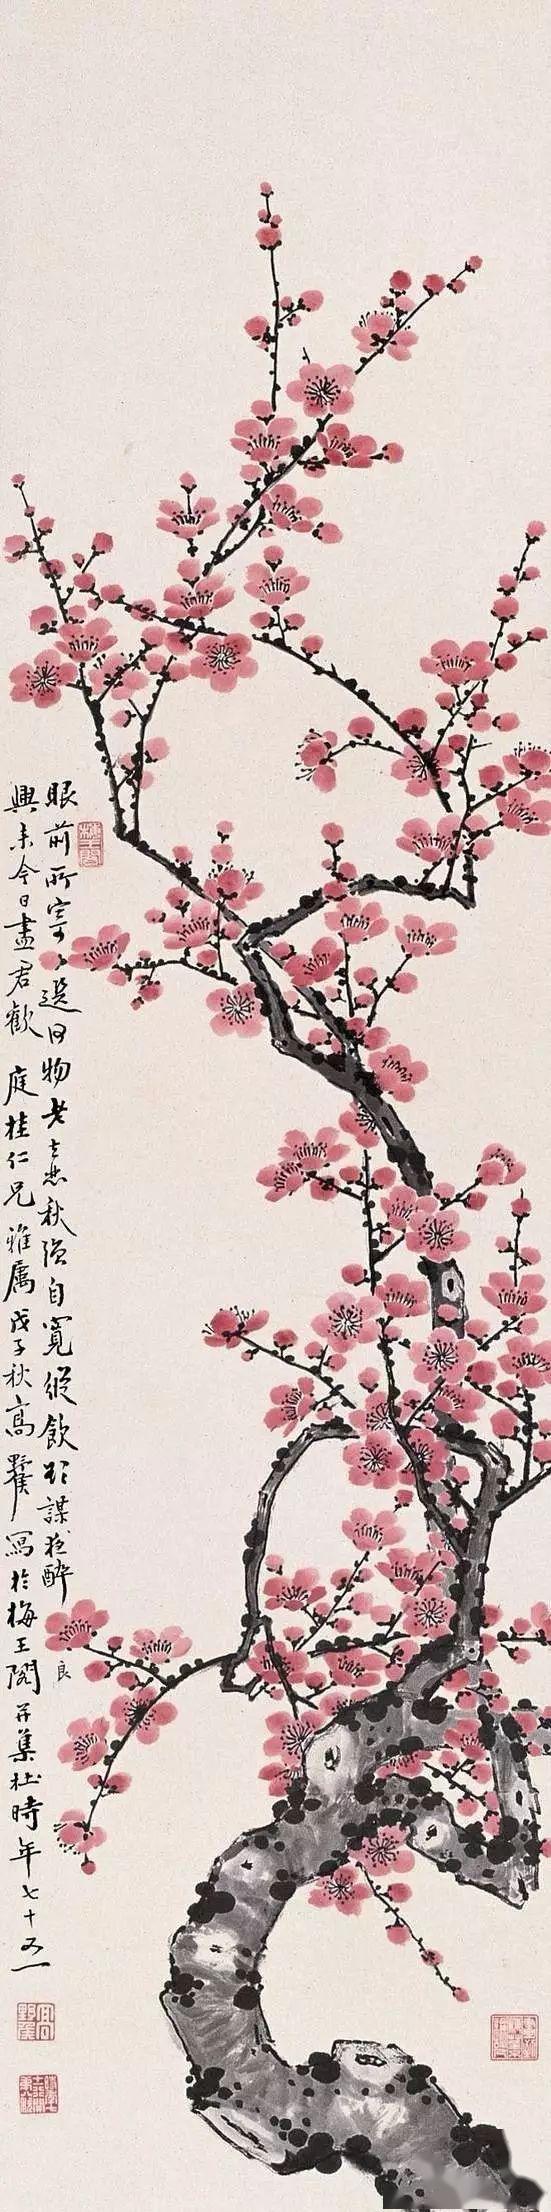 眼前所寄選何物老去悲秋強自寬縱飲欲謀夜醉
良
興来今日盡君歡 庭桂仁兄雅屬 戊子秋高野侯寫於梅王閣并集杜時年七十又一
梅王閣
高野侯